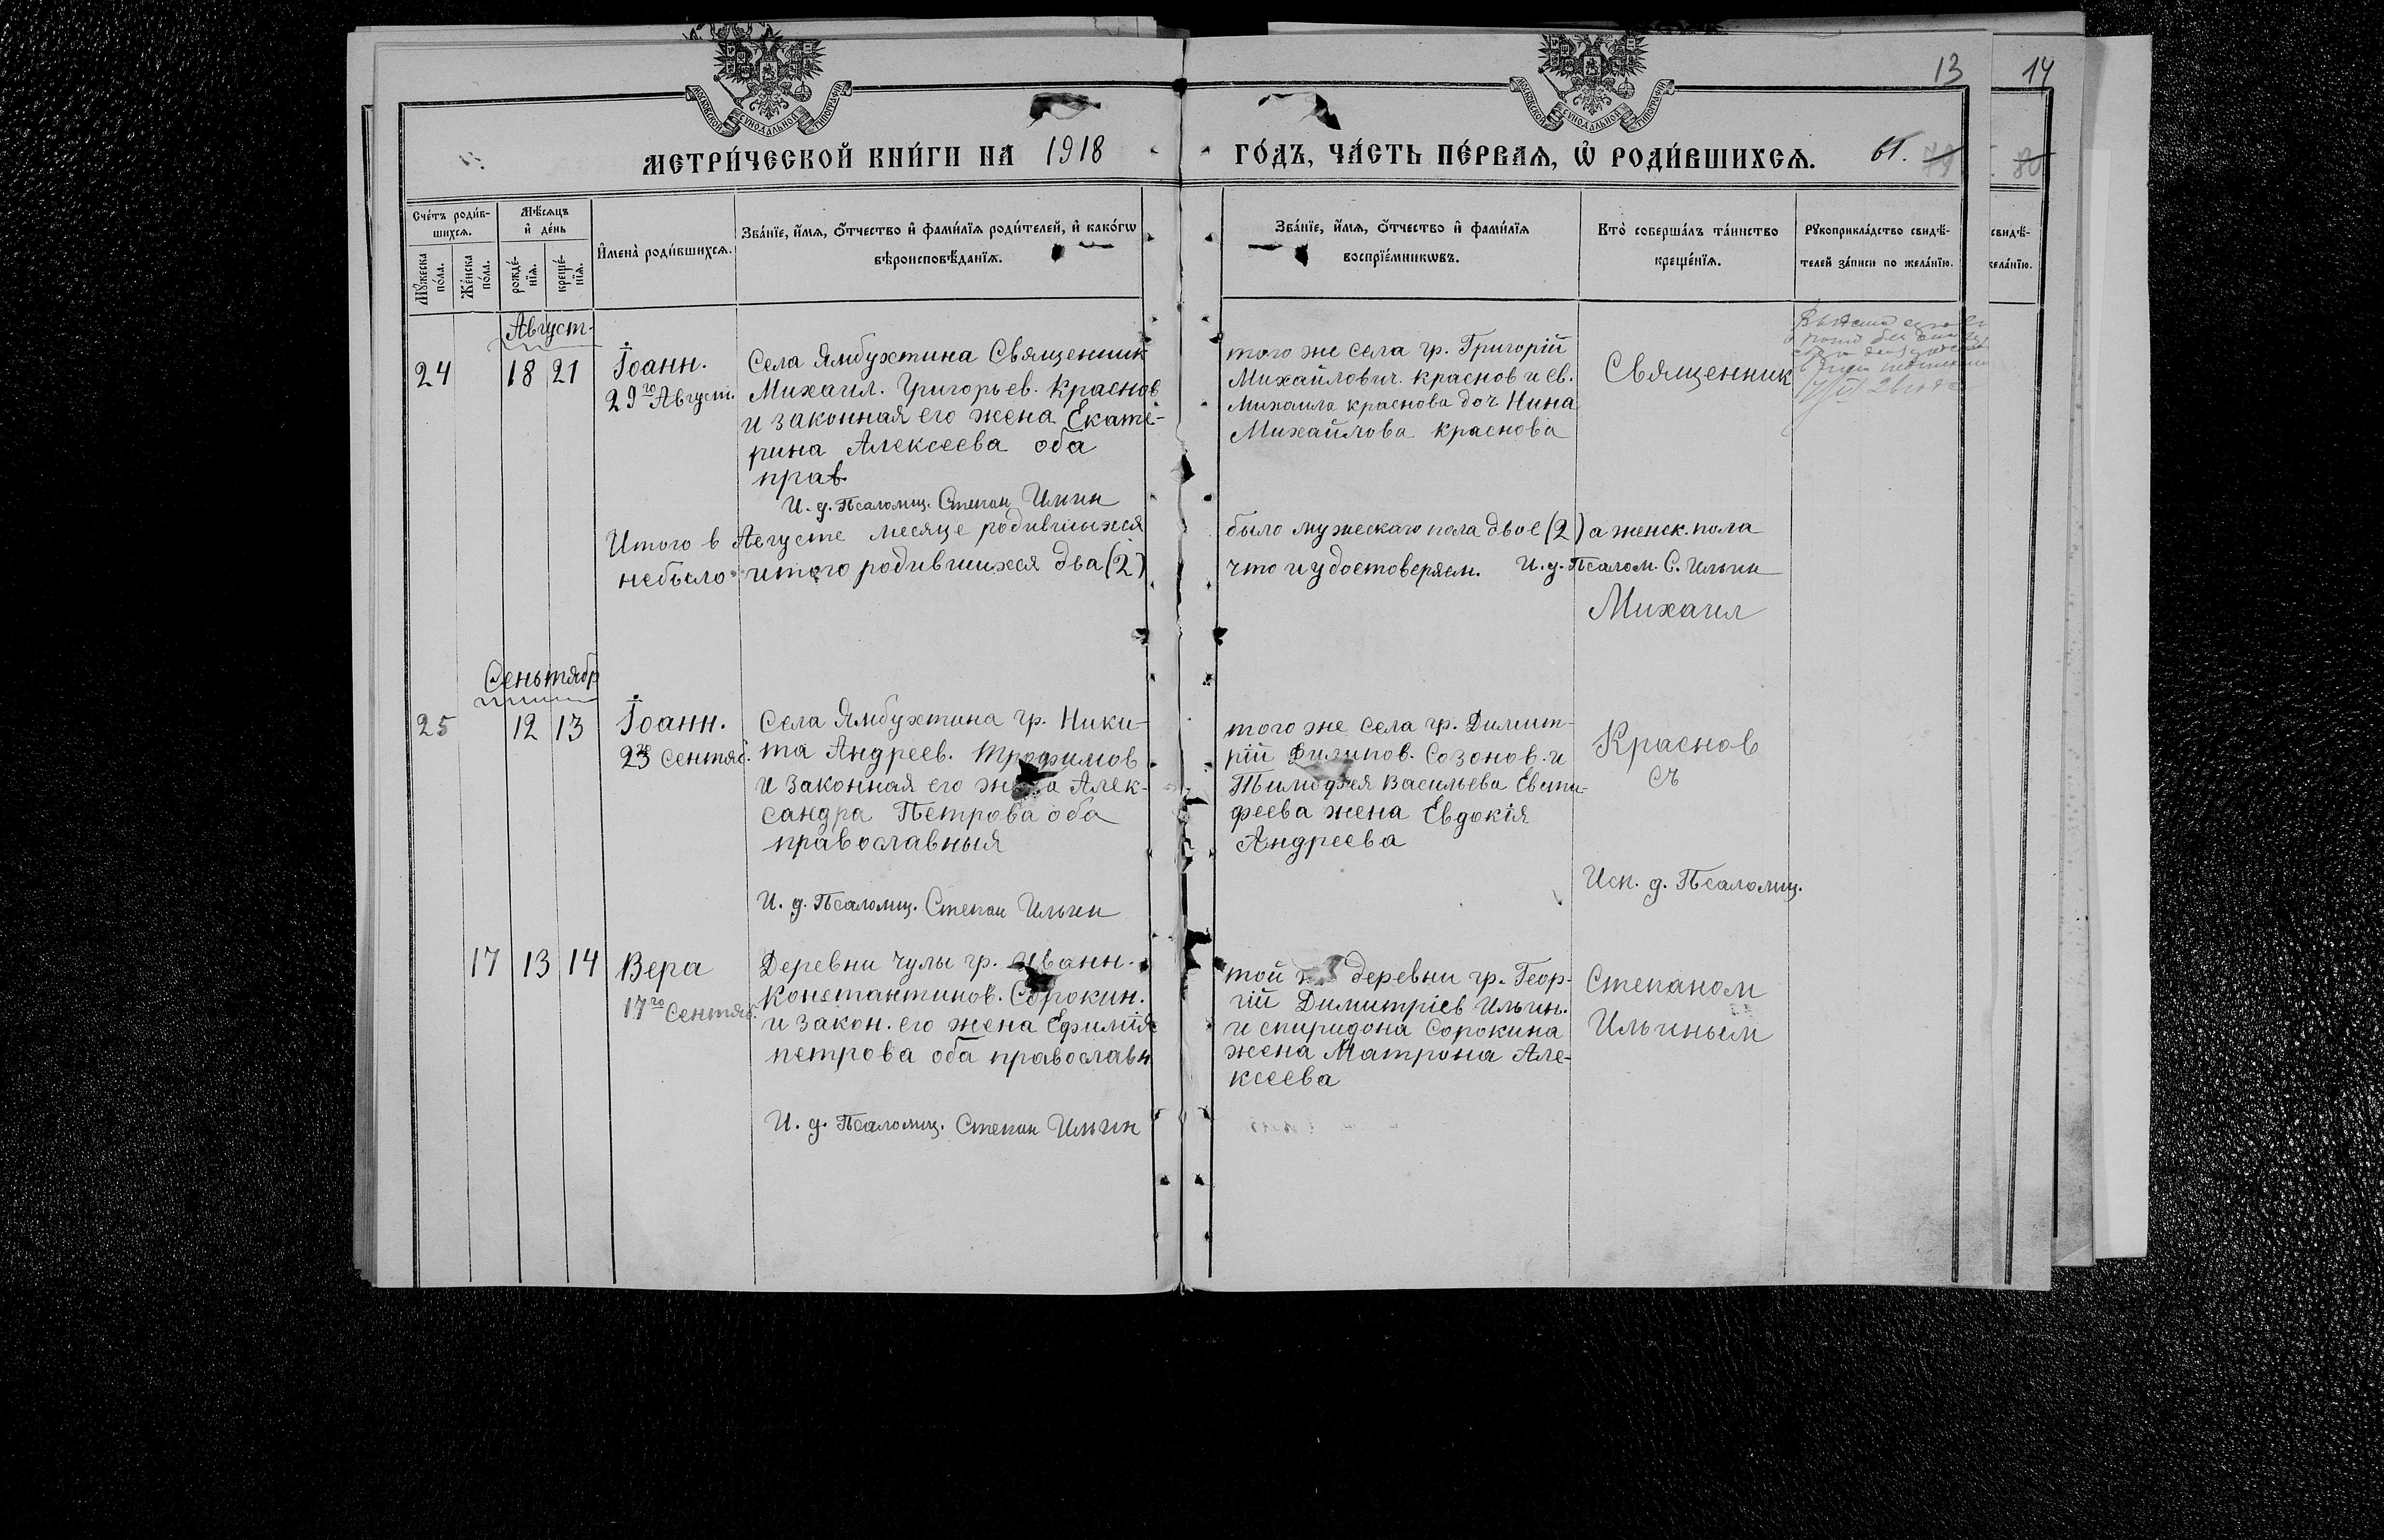 13
14
МОСКОВСКОЙ СУНОДАЛЬНОЙ ТИПОГРАФІИ
МОСКОВСКОЙ СУНОДАЛЬНОЙ ТИПОГРАФІИ
МЕТРИ́ЧЕСКОЙ КНИ́ГИ НА 1918
ГО́ДЪ, ЧА́СТЬ ПЕ́РВАЯ, Ѡ҆ РОДИ́ВШИХСЯ.
78
80
Сче́тъ роди́в-
шихся.
Мѣ́сяцъ
и҆ де́нь
Мꙋ́жеска
по́ла.
Же́нска
по́ла.
рожде́-
нїя.
креще́-
нїя.
И҆мена̀ роди́вшихся.
Зва́нїе, и҆́мя, ѻ҆́тчество и҆ фами́лїя роди́телей, и҆ како́гѡ
вѣроисповѣ́данїя.
Зва́нїе, и҆́мя, ѻ҆́тчество и҆ фами́лїя
воспрїе́мникѡвъ.
Кто̀ соверша́лъ та́инство
креще́нїя.
Рꙋкоприкла́дство свидѣ́-
телей за́писи по жела́нїю.
свидѣ́-
жела́нїю.
Август
24 18 21
Іоанн.
29го Август.
Села Ямбухтина Священник
Михаил. Григорьев. Краснов
и законная его жена Екате-
рина Алексеева оба
прав.
И. д. Псаломщ. Степан Ильин
того же села гр. Григорій
Михайлович. Краснов и св.
Михаила краснова доч Нина
Михайлова краснова
Священник
Итого в Августе месяце родившыхся
было мужескаго пола двое (2) а женск. пола
небыло итого родившихся два (2)
что и удостоверяем. И. д. Псалом. С. Ильин
Михаил
Сеньтябр
25 12 13
Іоанн.
23 Сентяб.
Села Ямбухтина гр. Ники-
та Андреев. Трофимов
и законная его жена Алек-
сандра Петрова оба
православныя
И. д. Псаломщ. Степан Ильин
того же села гр. Димит-
рій Филипов. Созонов. и
Васильева
феева жена Евдокія
Андреева
Краснов
съ
Исп. д. Псаломщ.
17 13 14
Вера
17го Сентяб.
Деревни Чулы гр. Иванн.
Константинов. Сорокин.
и закон. его жена Ефимія
петрова оба православн
И. д. Псаломщ. Степан Ильин
той деревни гр. Геор-
гій Димитріев Ильин.
и спиридона Сорокина
жена Матрона Але-
ксеева
Степаном
Ильиным